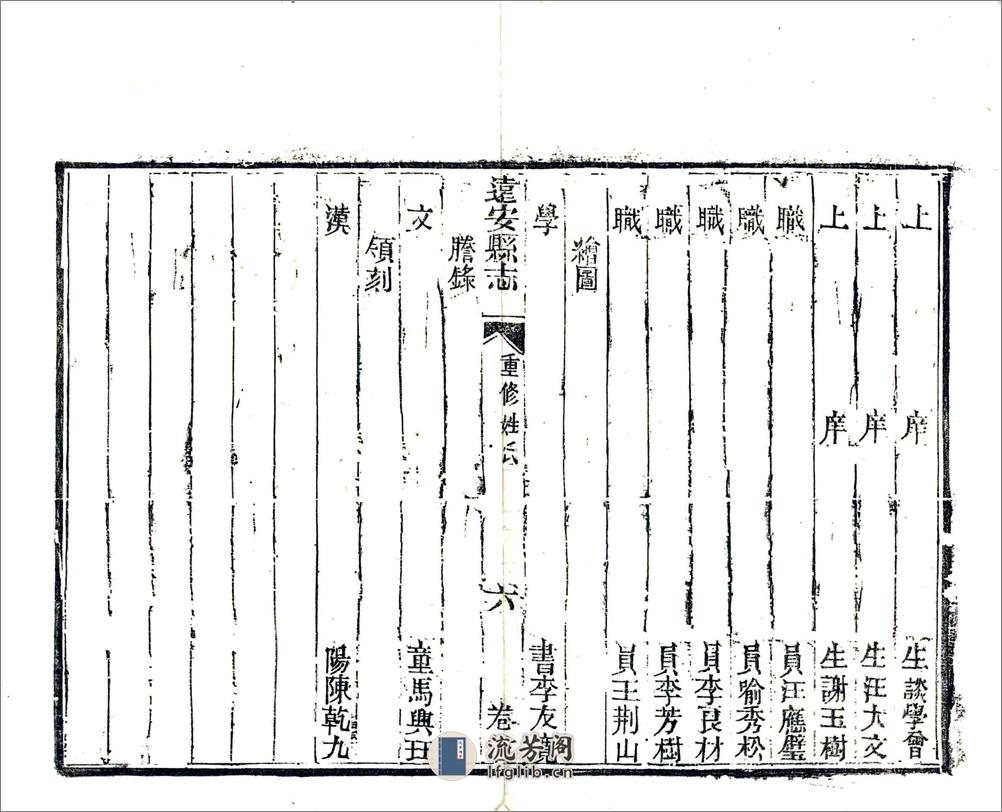 上庠生談學會
上庠生汪大文
上庠生謝玉樹
職員汪應璧
職員喻秀松
職員李良材
職員李芳樹
職員王荆山
繪圖
學書李友
遠安縣志
重修姓氏
六
卷
謄錄
文童馬興五
領刻
漢陽陳乾九
流芳阁
lfglib.cn